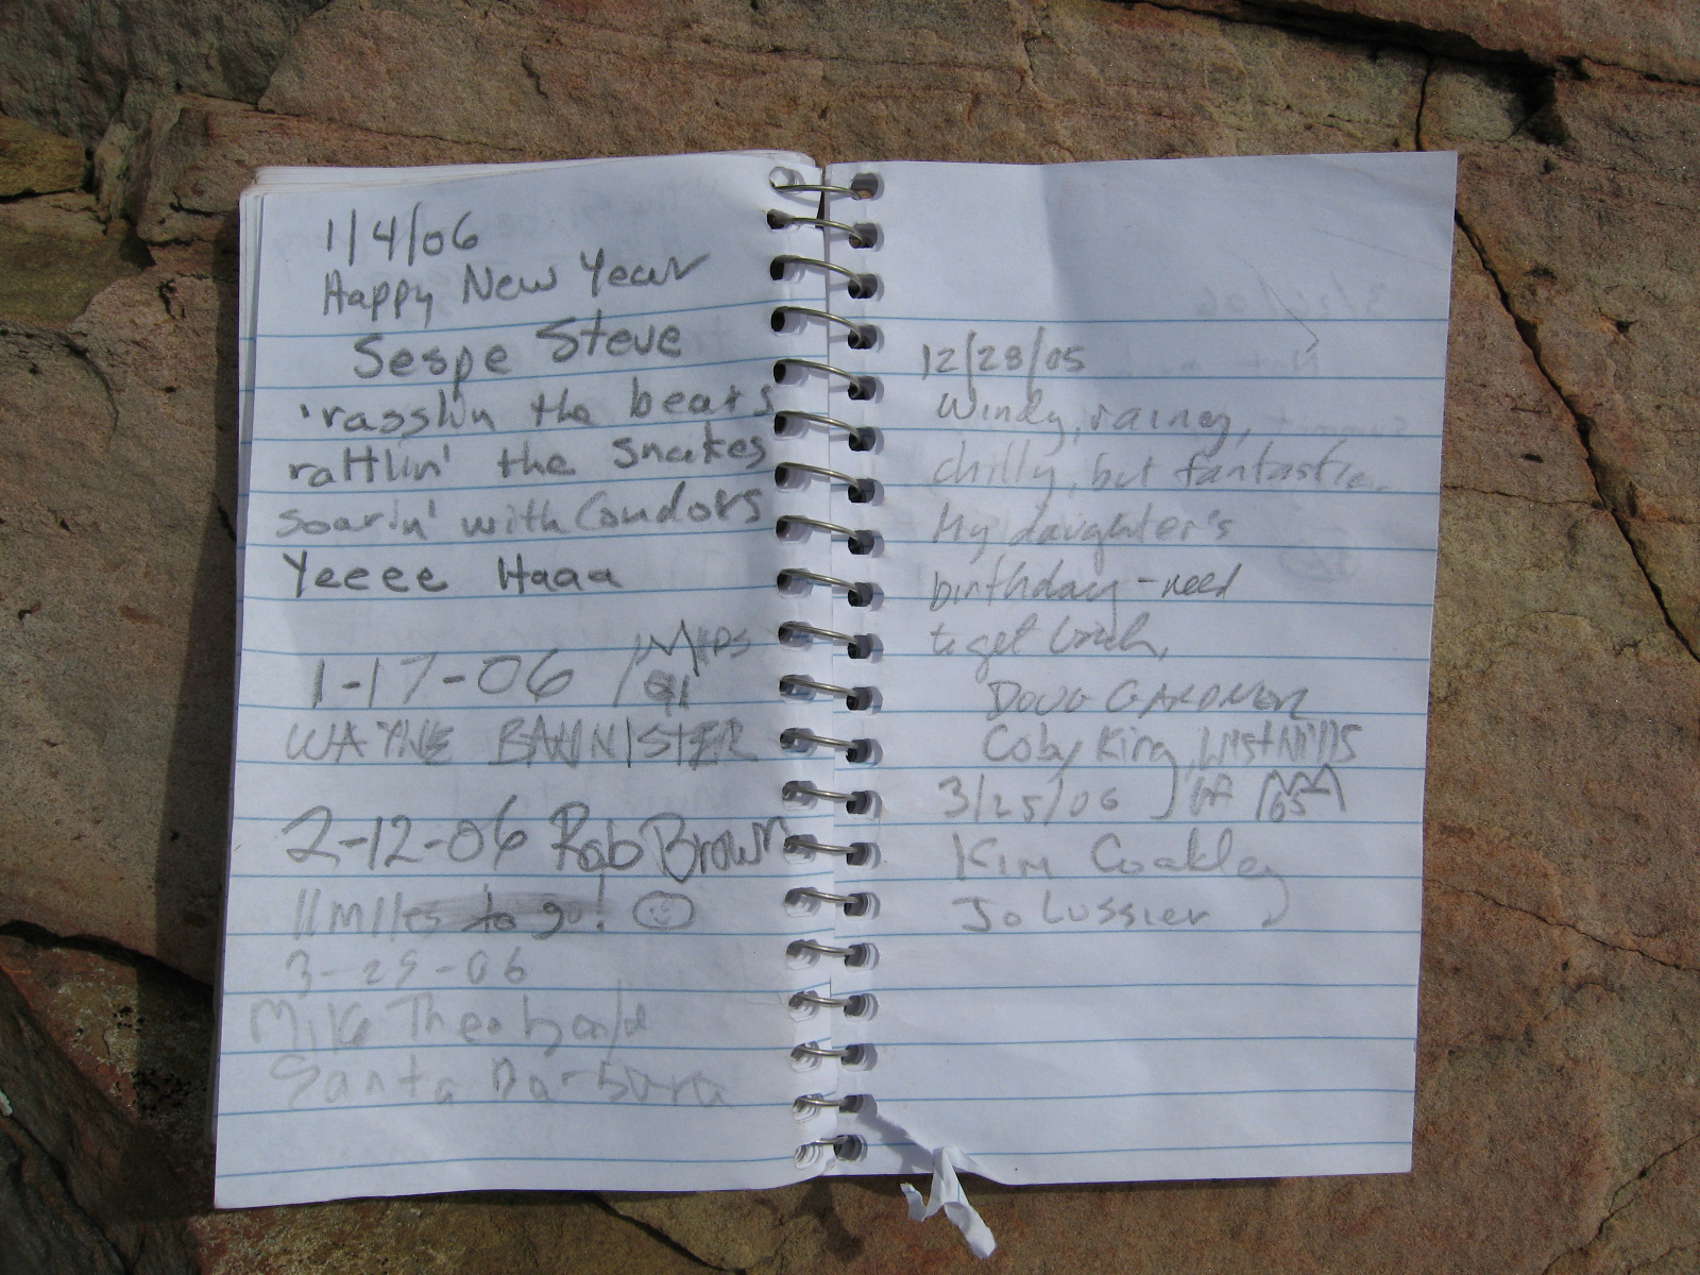 1/4/06
Happy New Year
Sespe Steve
'rasslin the bears
rattlin' the snakes
soarin' with Condors
Yeeee Haaa
1-17-06
WAYNE BANNISTER
2-12-06 Rob Brown
11 miles to go!
3-25-06
Mike
Santa Barbara
12/28/05
Windy, rainey,
chilly, but fantastic.
My daughter's
birthday - need
to get back,
DOUG GARDNER
Coby King, West Hills
3/25/06
Kim Coakley
Jo Lussier